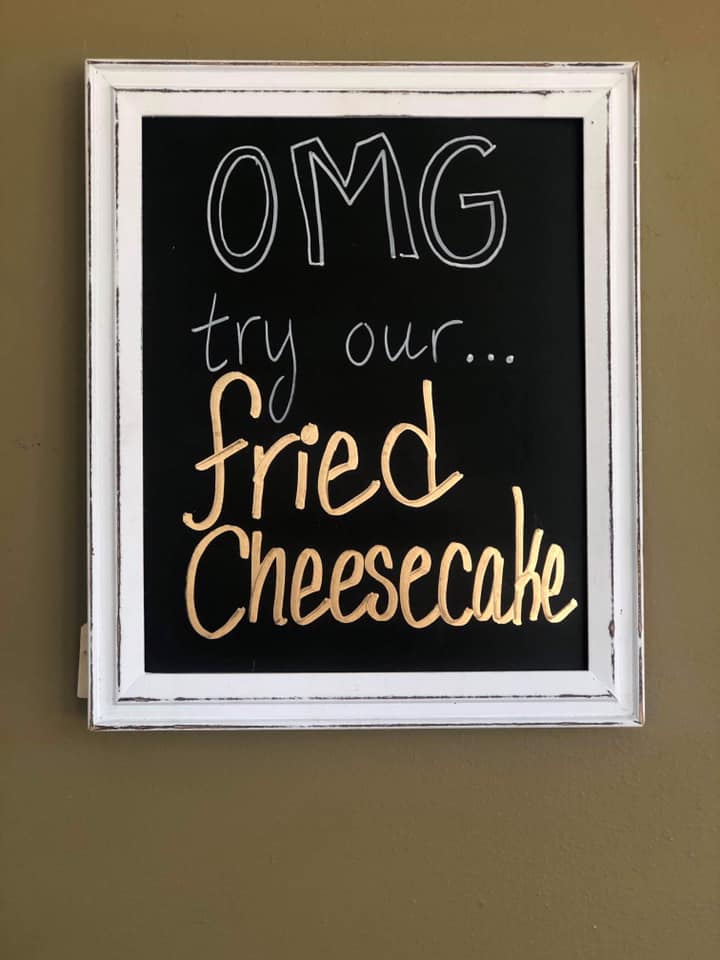 OMG
try our...
fried
Cheesecake